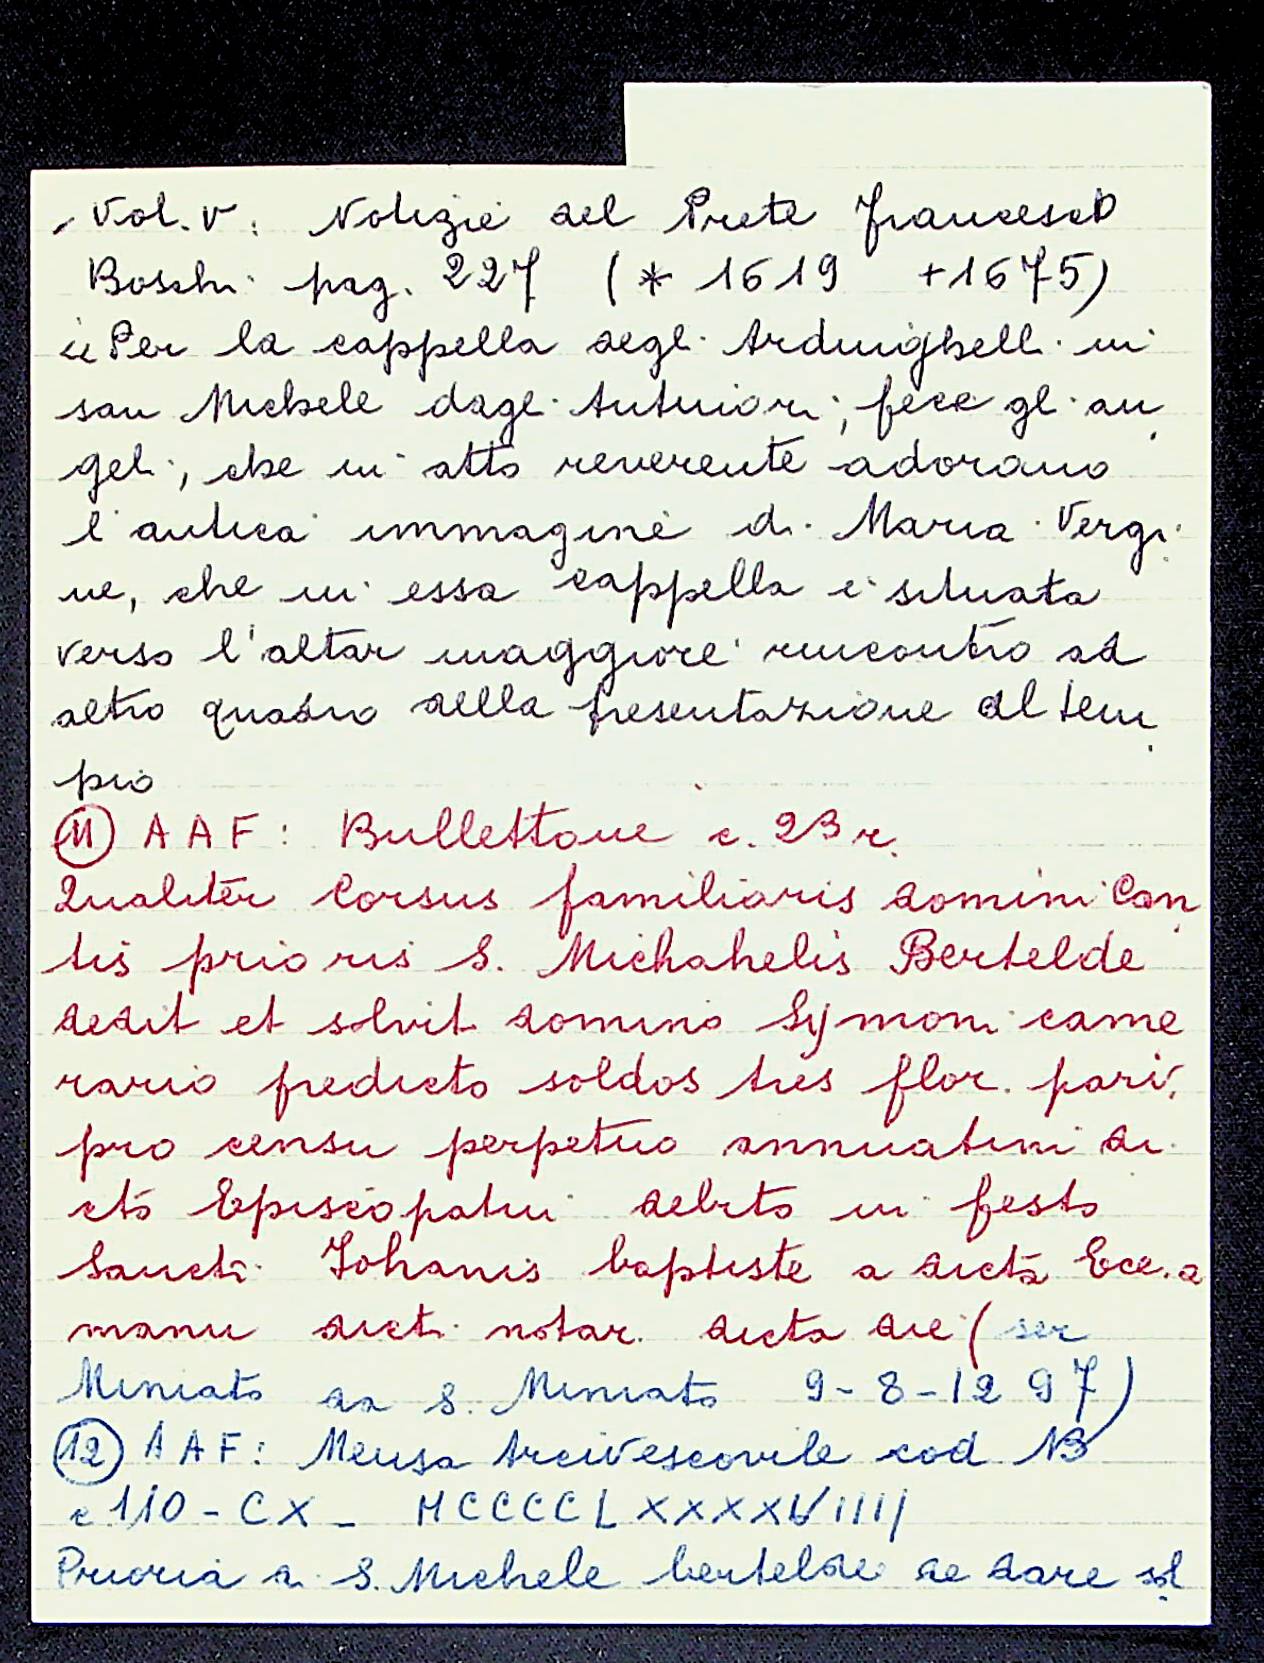 Vol. V: Notizie del Prete Francesco
Boschi pag. 227 (* 1619 +1675)
"Per la cappella degli Ardinghelli in
san Michele dagli Antinori, fece gli an
geli, che in atto reverente adorano
l'antica immagine di Maria Vergi
ne, che in essa cappella è situata
verso l'altar maggiore rincontro ad
altro quadro della presentazione al tem
pio
11 AAF: Bullettone c. 23 r.
Qualiter Corsus familiaris domini Can
tis prioris S. Michahelis Bertelde
dedit et solvit domino Symoni came
rario predicto soldos tres flor. parv.
pro censu perpetuo annuatim di
cto Episcopatui debito in festo
Sancti Johanis baptiste a dicta Ecc. a
manu dicti notar. dicta die (ser
Miniato da S. Miniato 9-8-1297)
12 AAF: Mensa Arcivescovile cod 13
c 110 - CX - MCCCCLXXXXVIIII
Prioria di S. Michele bertelde de dare sol